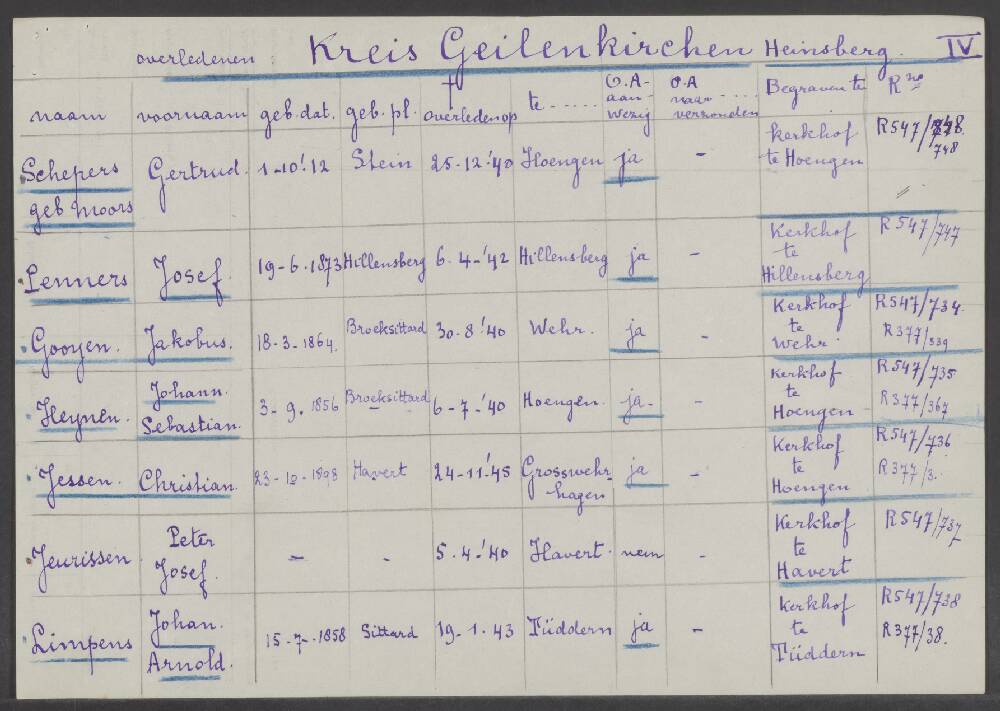 overledenen: Kreis Geilenkirchen Heinsberg. IV
naam voornaam geb. dat. geb. pl. † overleden op te ..... O.A- aan- wezig O.A naar .... verzonden Begraven te R no
Schepers geb Moors Gertrud. 1-10-'12 Stein 25-12-'40 Hoengen ja - Kerkhof te Hoengen R547/748. 748
Penners Josef. 19-6-1873 Hillensberg 6-4-'42 Hillensberg ja - Kerkhof te Hillensberg R547/747
Gooyen. Jakobus. 18-3-1864. Broeksittard 30-8-'40 Wehr. ja - Kerkhof te Wehr. R547/734. R377/339
Heynen. Johann. Sebastian. 3-9-1856 Broeksittard 6-7-'40 Hoengen. ja - Kerkhof te Hoengen R547/735 R377/367
Jessen. Christian. 23-12-1898 Havert 24-11-'45 Grosswehr-hagen ja - Kerkhof te Hoengen R547/736 R377/3.
Jeurissen Peter Josef. - - 5-4-'40 Havert. neen - Kerkhof te Havert R547/737
Limpens Johan. Arnold. 15-7-1858 Sittard 19-1-43 Tüddern ja - Kerkhof te Tüddern R547/738 R377/38.